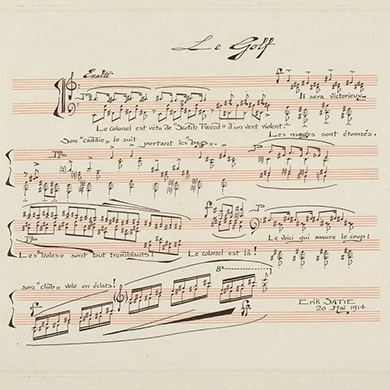 Le Golf
Exalté
Il sera victorieux.
Le colonel est vêtu de "Scotch Tweed" d'un vert violent.
Son "caddie" le suit portant les "bags".
Les nuages sont étonnés.
Les "holes" sont tout tremblants:
Le colonel est là!
Le voici qui assure le coup:
son "club" vole en éclats!
8va
Erik SATIE
20 Mai 1914